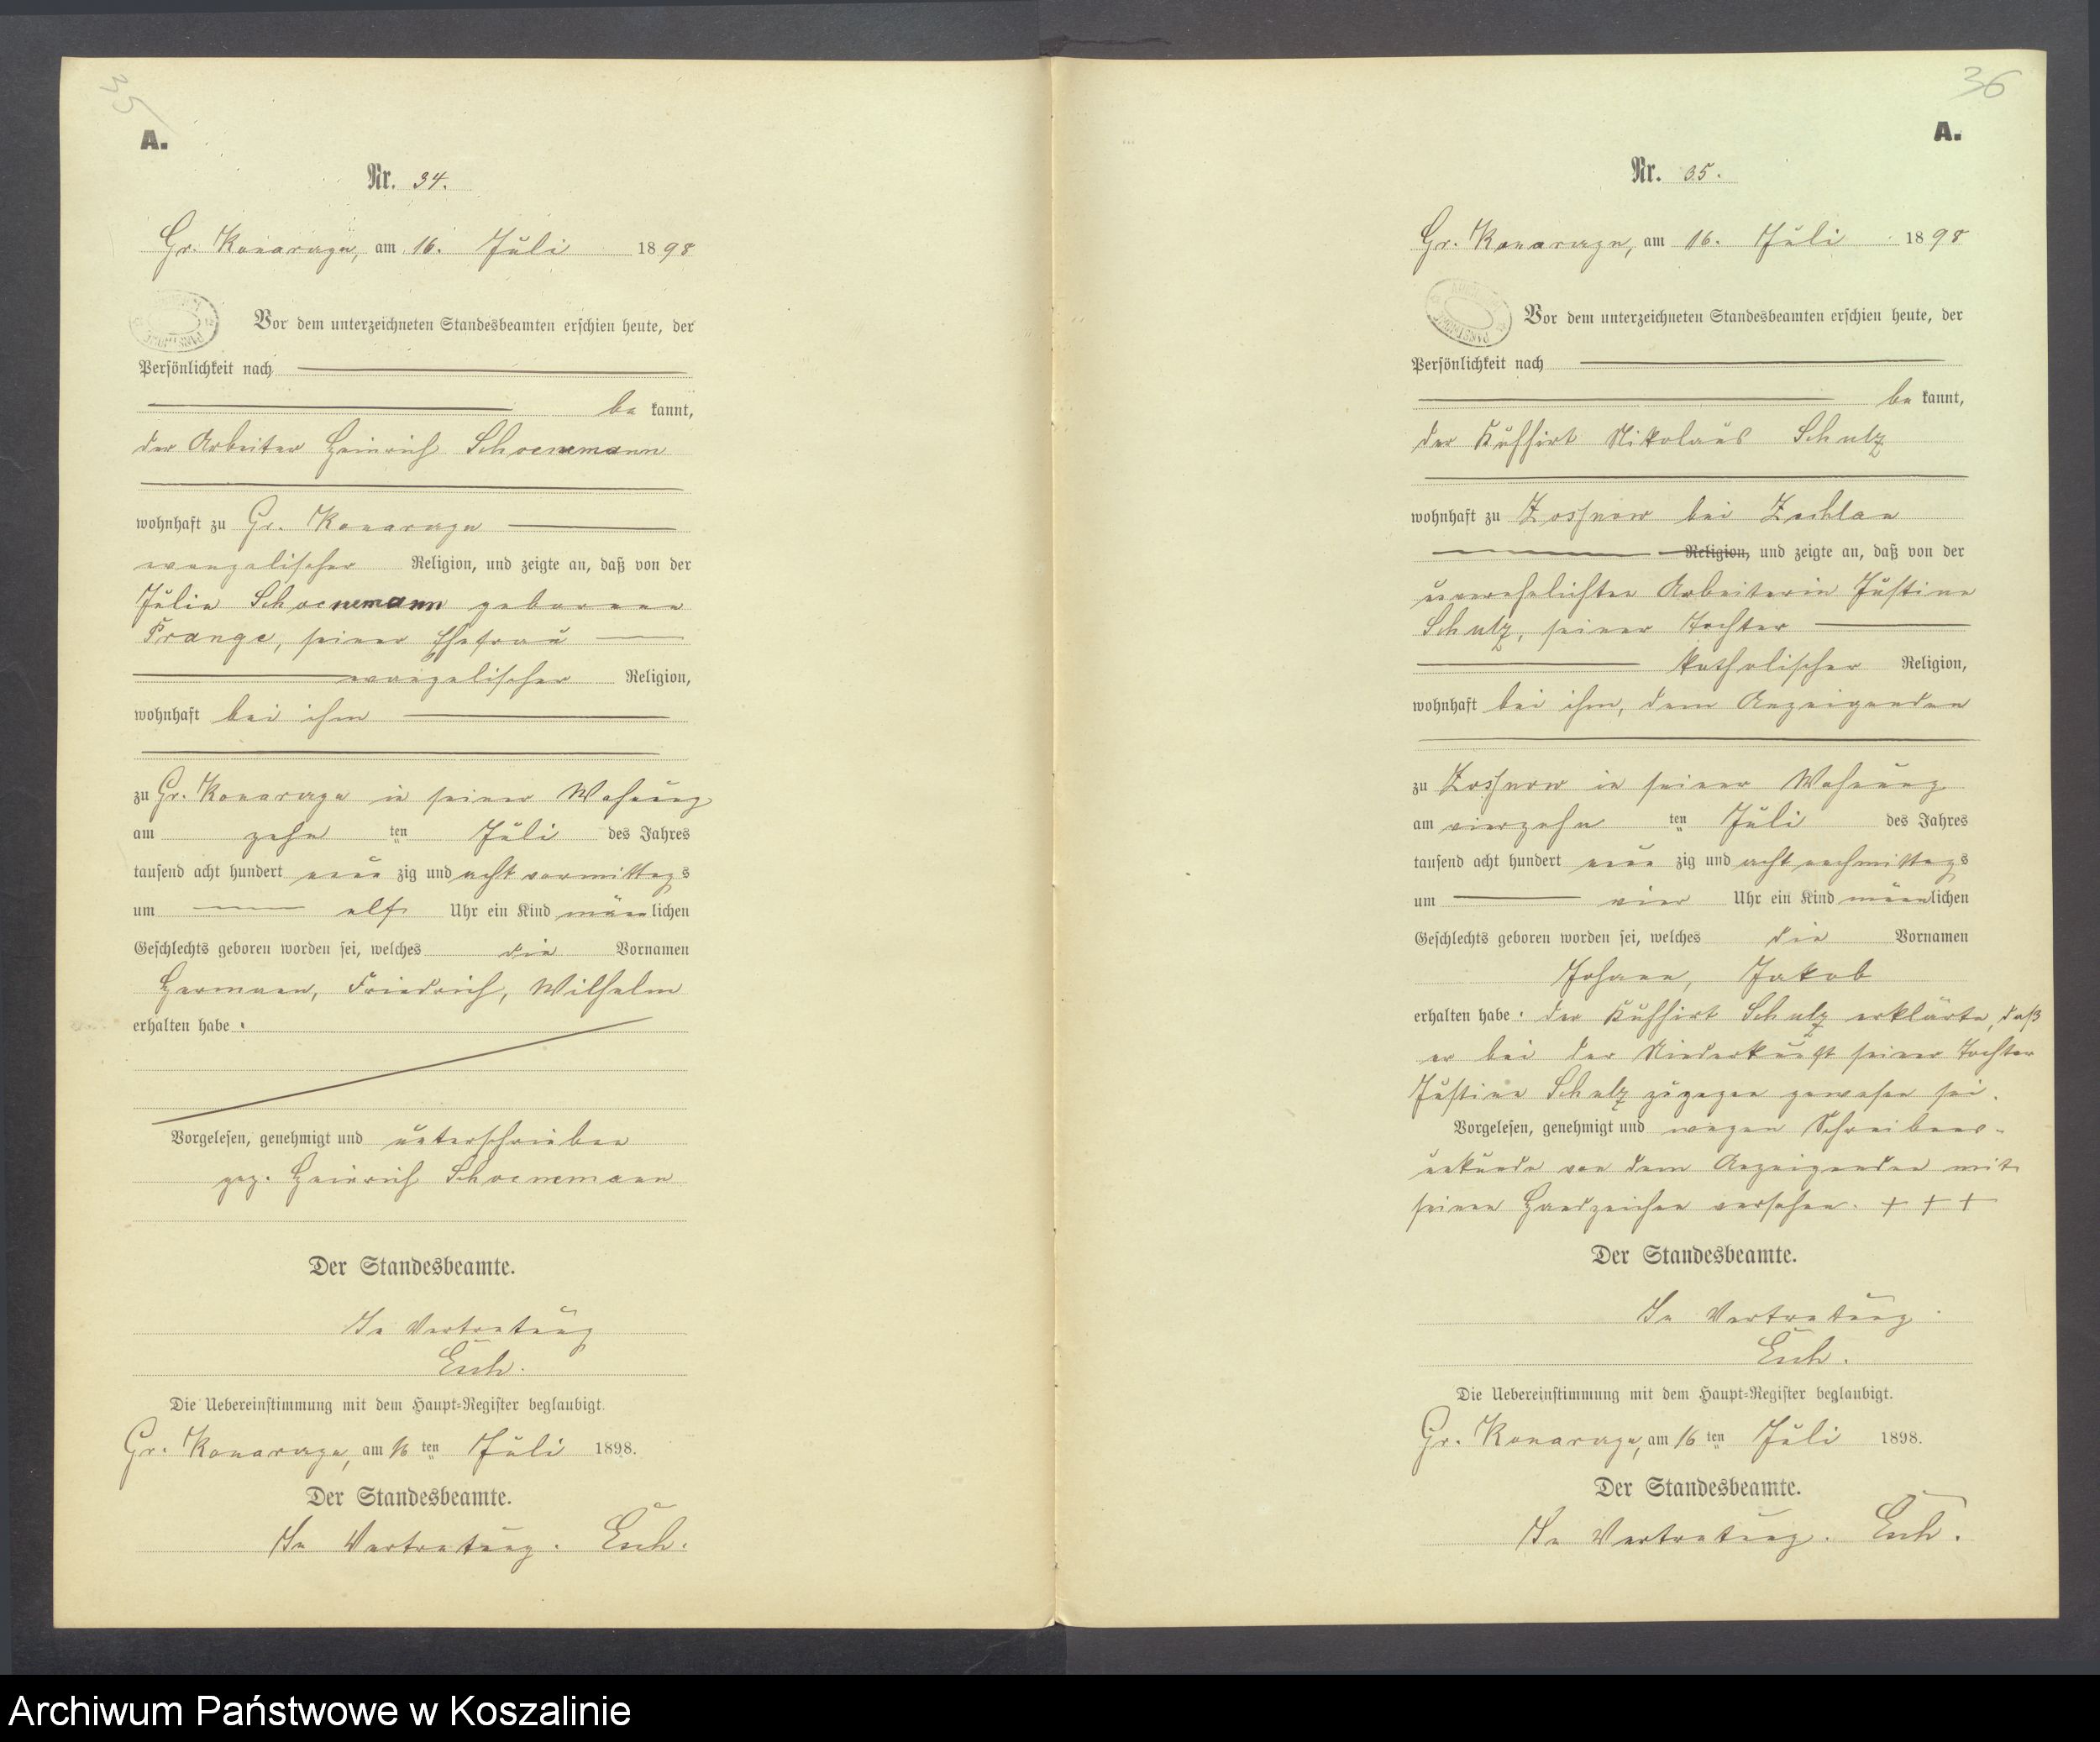 35
A.
Nr. 34.
Gr. Konarzyn, am 16. Juli 1898
Vor dem unterzeichneten Standesbeamten erschien heute, der
Persönlichkeit nach
be kannt,
der Arbeiter Heinrich Schoenemann
wohnhaft zu Gr. Konarzyn
evangelischer Religion, und zeigte an, daß von der
Julie Schoenemann geborenen
Prange, seiner Ehefrau
evangelischer Religion,
wohnhaft bei ihm
zu Gr. Konarzyn in seiner Wohnung
am zehn ten Juli des Jahres
tausend acht hundert neun zig und acht vormittags
um elf Uhr ein Kind männlichen
Geschlechts geboren worden sei, welches die Vornamen
Hermann, Friedrich, Wilhelm
erhalten habe.
Vorgelesen, genehmigt und unterschrieben
gez. Heinrich Schoenemann
Der Standesbeamte.
In Vertretung
Esch.
Die Uebereinstimmung mit dem Haupt-Register beglaubigt.
Gr. Konarzyn, am 16 ten Juli 1898.
Der Standesbeamte.
In Vertretung. Esch.
36
A.
Nr. 35.
Gr. Konarzyn, am 16. Juli 1898
Vor dem unterzeichneten Standesbeamten erschien heute, der
Persönlichkeit nach
be kannt,
der Kuhhirt Nikolaus Schulz
wohnhaft zu Zossnow bei Zechlau
Religion, und zeigte an, daß von der
unverehelichten Arbeiterin Justine
Schulz, seiner Tochter
katholischer Religion,
wohnhaft bei ihm, dem Anzeigenden
zu Zossnow in seiner Wohnung
am vierzehn ten Juli des Jahres
tausend acht hundert neun zig und acht nachmittags
um vier Uhr ein Kind männlichen
Geschlechts geboren worden sei, welches die Vornamen
Johann, Jakob
erhalten habe. der Kuhhirt Schulz erklärte, daß
er bei der Niederkunft seiner Tochter
Justine Schulz zugegen gewesen sei.
Vorgelesen, genehmigt und wegen Schreibens-
unkunde von dem Anzeigenden mit
seinen Handzeichen versehen. + + +
Der Standesbeamte.
In Vertretung.
Esch.
Die Uebereinstimmung mit dem Haupt-Register beglaubigt.
Gr. Konarzyn, am 16 ten Juli 1898.
Der Standesbeamte.
In Vertretung. Esch.
Archiwum Państwowe w Koszalinie